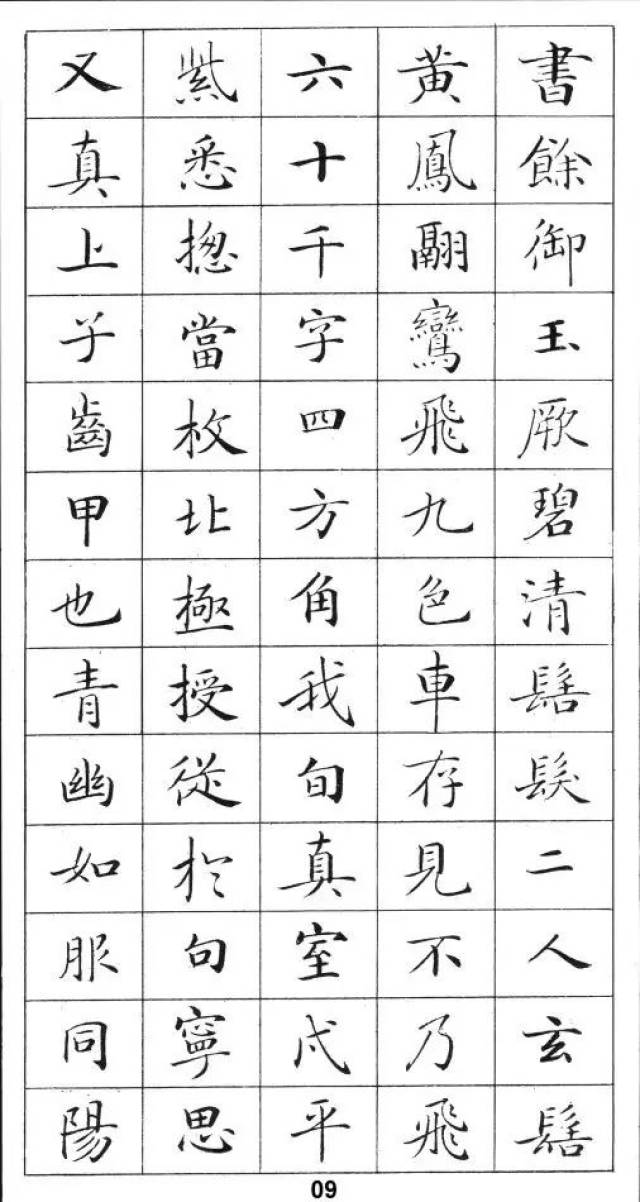 書餘御玉厥碧清髻髮二人玄髻
黃鳳翮鸞飛九色車存見不乃飛
六十千字四方角我旬真室平
紫悉揔當枚北極授從於句寧思
又真上子齒甲也青幽如服同陽
09